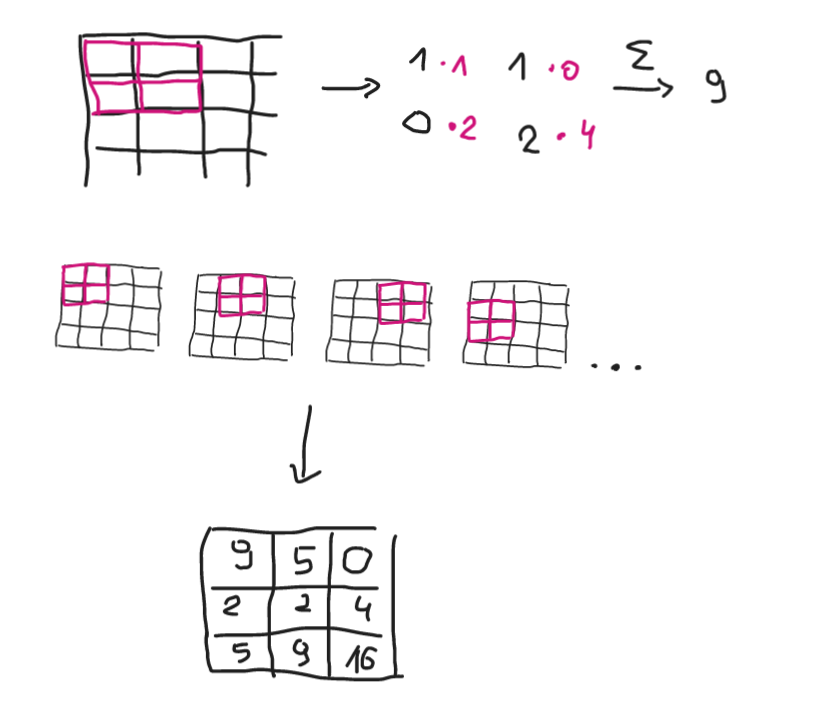 1 · 1 1 · 0 Σ 9
0 · 2 2 · 4
...
9 5 0
2 2 4
5 9 16